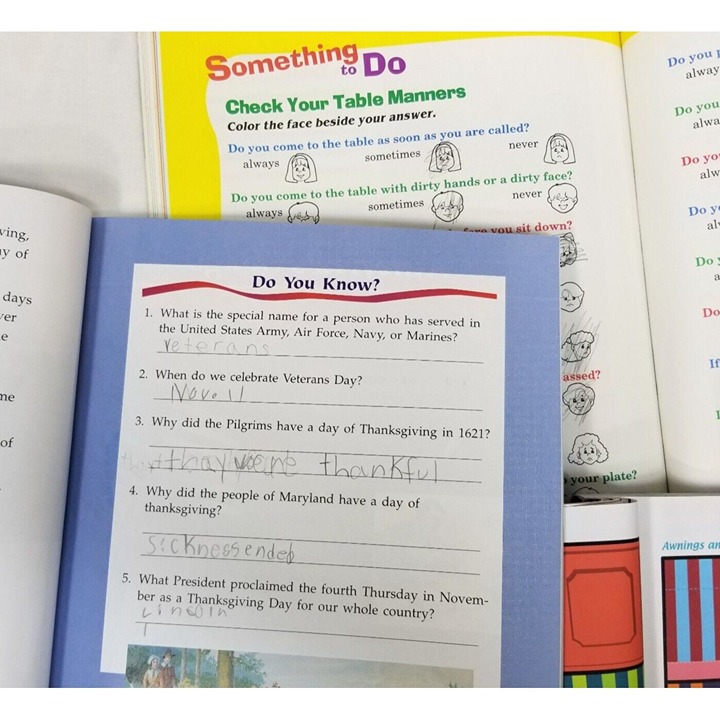 Something
to Do
Check Your Table Manners
Color the face beside your answer.
Do you come to the table as soon as you are called?
always sometimes never
Do you come to the table with dirty hands or a dirty face?
always sometimes never
you sit down?
assed?
your plate?
Do you
alway
Do you
alwa
Do yo
alw
Do y
al
Do
a
Do
If
Awnings an
ving,
y of
days
ver
e
me
of
Do You Know?
1. What is the special name for a person who has served in
the United States Army, Air Force, Navy, or Marines?
veterans
2. When do we celebrate Veterans Day?
Nov. 11
3. Why did the Pilgrims have a day of Thanksgiving in 1621?
thay were thankful
4. Why did the people of Maryland have a day of
thanksgiving?
sickness ended
5. What President proclaimed the fourth Thursday in Novem-
ber as a Thanksgiving Day for our whole country?
Lincoln